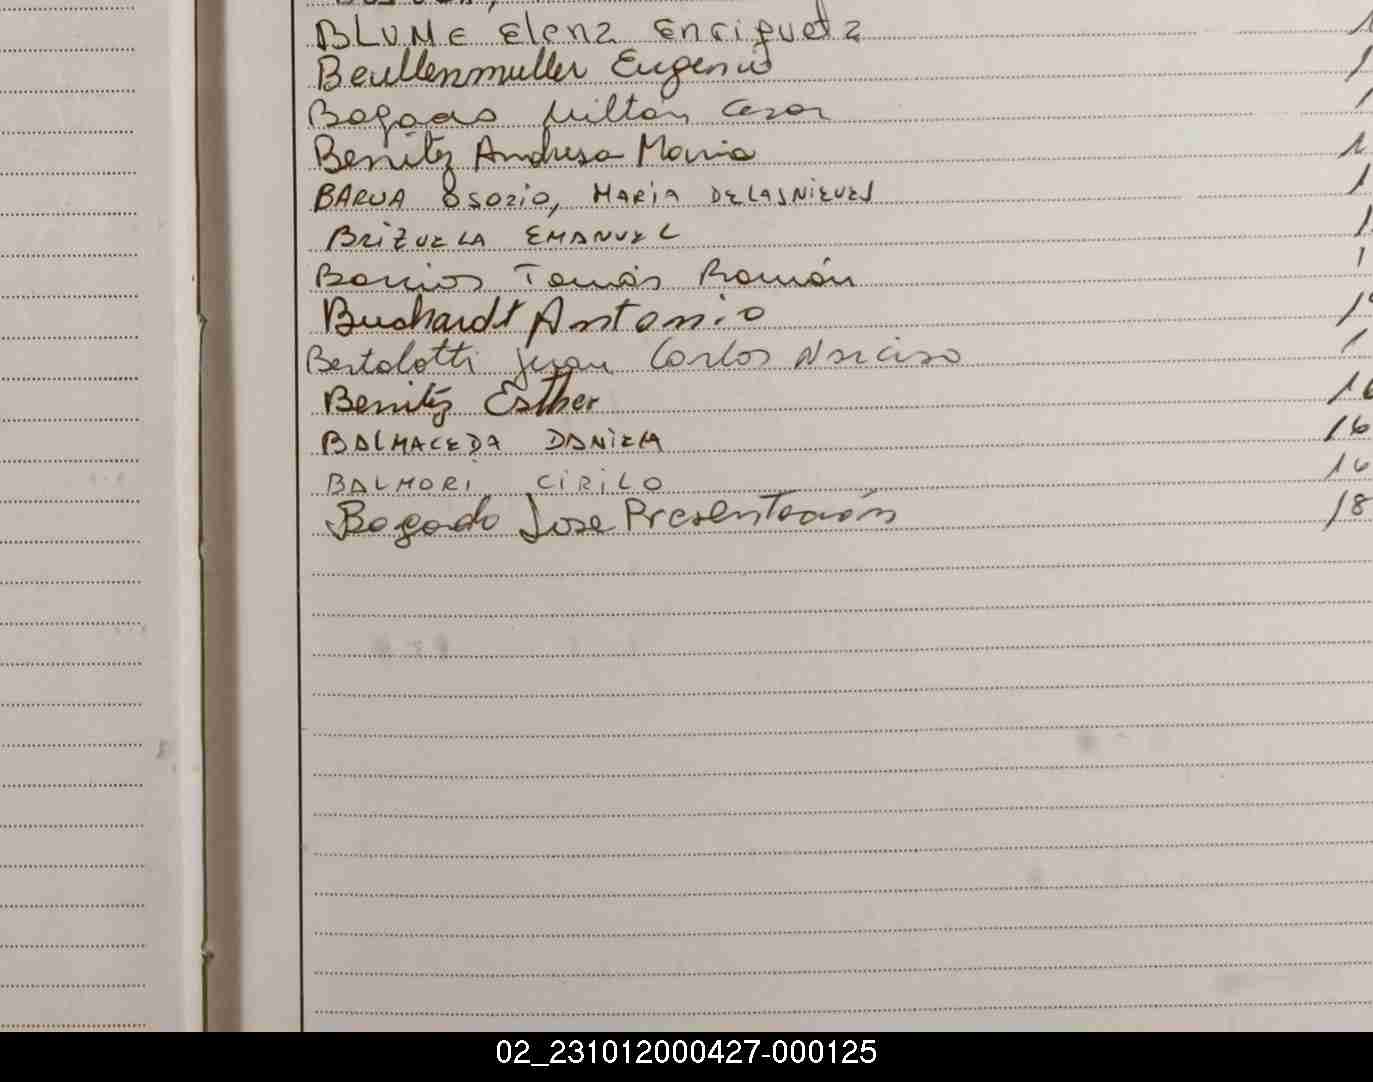 BLUME Elena Enriqueta 1
Beullenmuller Eugenio 1
Milton Cesar 1
Benitez Andresa Maria 1
BARUA OSORIO, MARIA DE LAS NIEVES 1
BRIZUELA EMANUEL 1
Barrios Tomás Ramón 1
Bushardt Antonio 1
Bertolotti Juan Carlos Narciso 1
Benitez Esther 16
BALMACEDA DANIELA 16
BALMORI CIRILO 16
Bogado Jose Presentación 18
02_231012000427-000125